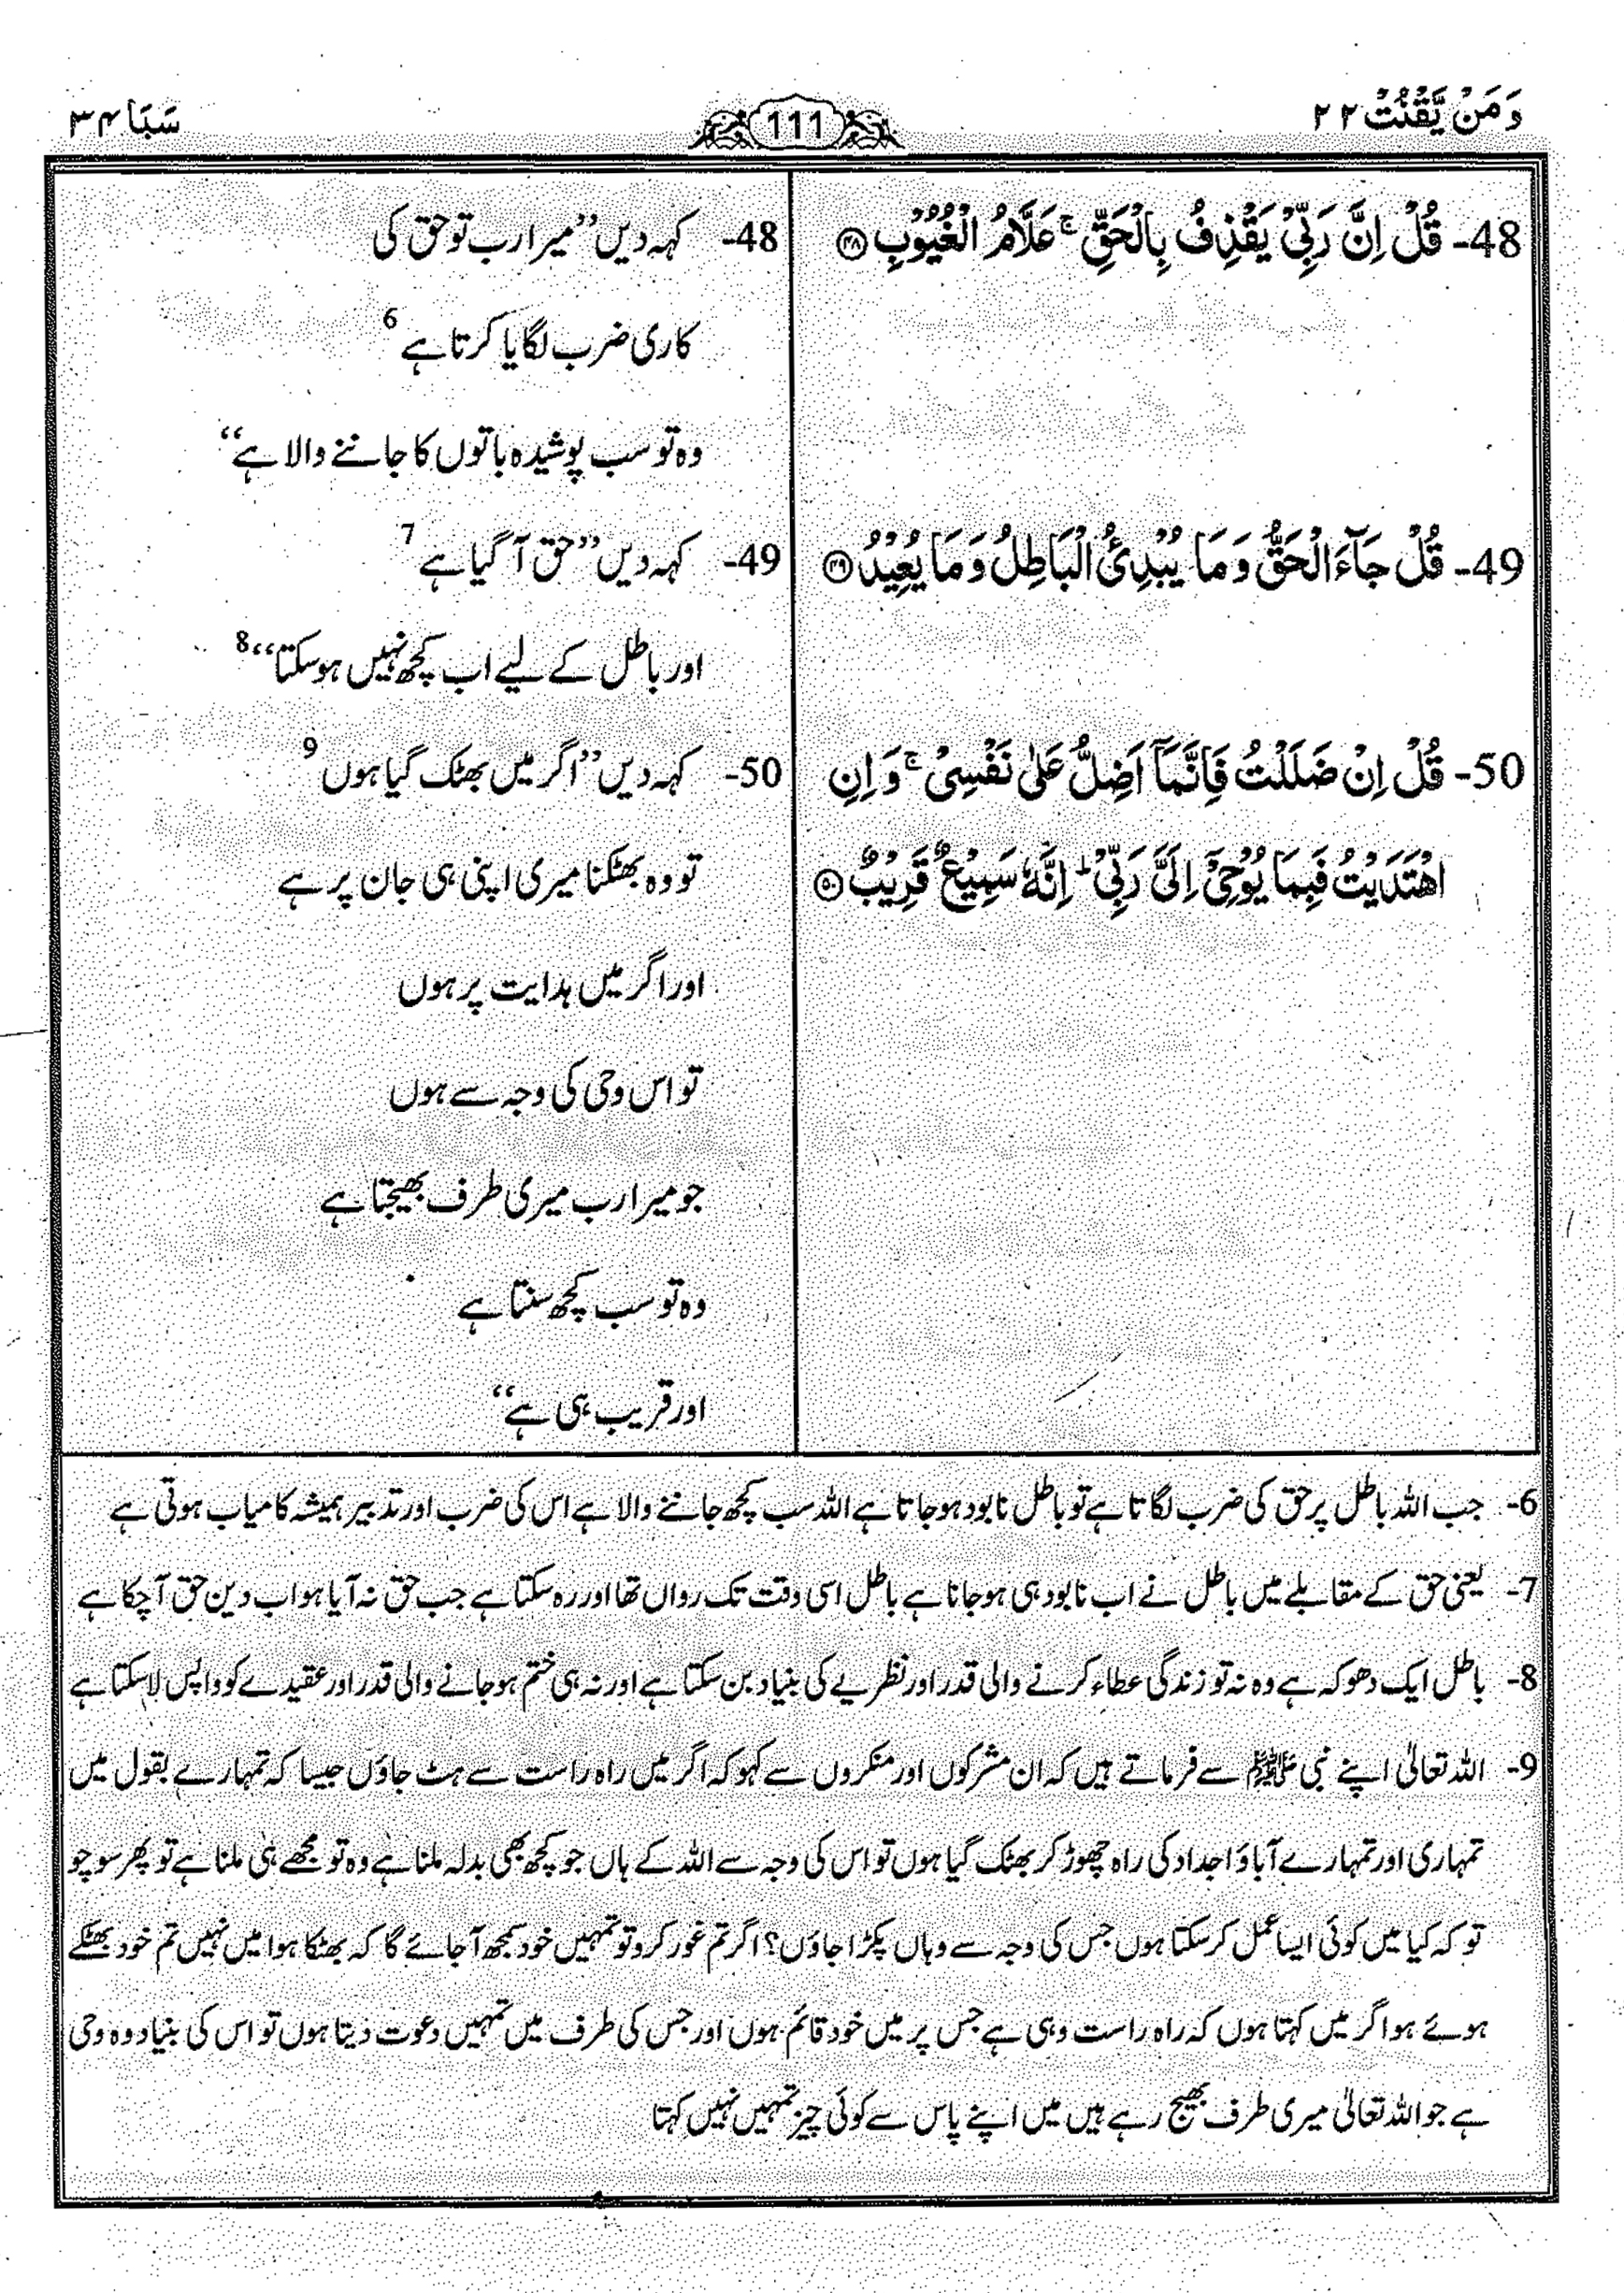 وَمَنْ يَّقْنُتْ ٢٢
111
سَبَا ٣٤
48- قُلْ اِنَّ رَبِّىْ يَقْذِفُ بِالْحَقِّ ۚ عَلَّامُ الْغُيُوْبِ ﴿٤٨﴾
49- قُلْ جَآءَ الْحَقُّ وَمَا يُبْدِئُ الْبَاطِلُ وَمَا يُعِيْدُ ﴿٤٩﴾
50- قُلْ اِنْ ضَلَلْتُ فَاِنَّمَآ اَضِلُّ عَلٰى نَفْسِىْ ۚ وَاِنِ
اهْتَدَيْتُ فَبِمَا يُوْحِىْٓ اِلَىَّ رَبِّىْ ۭ اِنَّهٗ سَمِيْعٌ قَرِيْبٌ ﴿٥٠﴾
48- کہہ دیں ’’میرا رب تو حق کی
کاری ضرب لگایا کرتا ہے 6
وہ تو سب پوشیدہ باتوں کا جاننے والا ہے‘‘
49- کہہ دیں ’’حق آ گیا ہے 7
اور باطل کے لیے اب کچھ نہیں ہو سکتا‘‘ 8
50- کہہ دیں ’’اگر میں بھٹک گیا ہوں 9
تو وہ بھٹکنا میری اپنی ہی جان پر ہے
اور اگر میں ہدایت پر ہوں
تو اس وحی کی وجہ سے ہوں
جو میرا رب میری طرف بھیجتا ہے
وہ تو سب کچھ سنتا ہے
اور قریب ہی ہے‘‘
6- جب اللہ باطل پر حق کی ضرب لگاتا ہے تو باطل نابود ہو جاتا ہے اللہ سب کچھ جاننے والا ہے اس کی ضرب اور تدبیر ہمیشہ کامیاب ہوتی ہے
7- یعنی حق کے مقابلے میں باطل نے اب نابود ہی ہو جانا ہے باطل اسی وقت تک رواں تھا اور رہ سکتا ہے جب حق نہ آیا ہو اب دین حق آ چکا ہے
8- باطل ایک دھوکہ ہے وہ نہ تو زندگی عطاء کرنے والی قدر اور نظریے کی بنیاد بن سکتا ہے اور نہ ہی ختم ہو جانے والی قدر اور عقیدے کو واپس لا سکتا ہے
9- اللہ تعالٰی اپنے نبی ﷺ سے فرماتے ہیں کہ ان مشرکوں اور منکروں سے کہو کہ اگر میں راہ راست سے ہٹ جاؤں جیسا کہ تمہارے بقول میں
تمہاری اور تمہارے آباؤ اجداد کی راہ چھوڑ کر بھٹک گیا ہوں تو اس کی وجہ سے اللہ کے ہاں جو کچھ بھی بدلہ ملنا ہے وہ تو مجھے ہی ملنا ہے تو پھر سوچو
تو کہ کیا میں کوئی ایسا عمل کر سکتا ہوں جس کی وجہ سے وہاں پکڑا جاؤں؟ اگر تم غور کرو تو تمہیں خود سمجھ آ جائے گا کہ بھٹکا ہوا میں نہیں تم خود بھٹکے
ہوئے ہو اگر میں کہتا ہوں کہ راہ راست وہی ہے جس پر میں خود قائم ہوں اور جس کی طرف میں تمہیں دعوت دیتا ہوں تو اس کی بنیاد وہ وحی
ہے جو اللہ تعالٰی میری طرف بھیج رہے ہیں میں اپنے پاس سے کوئی چیز تمہیں نہیں کہتا